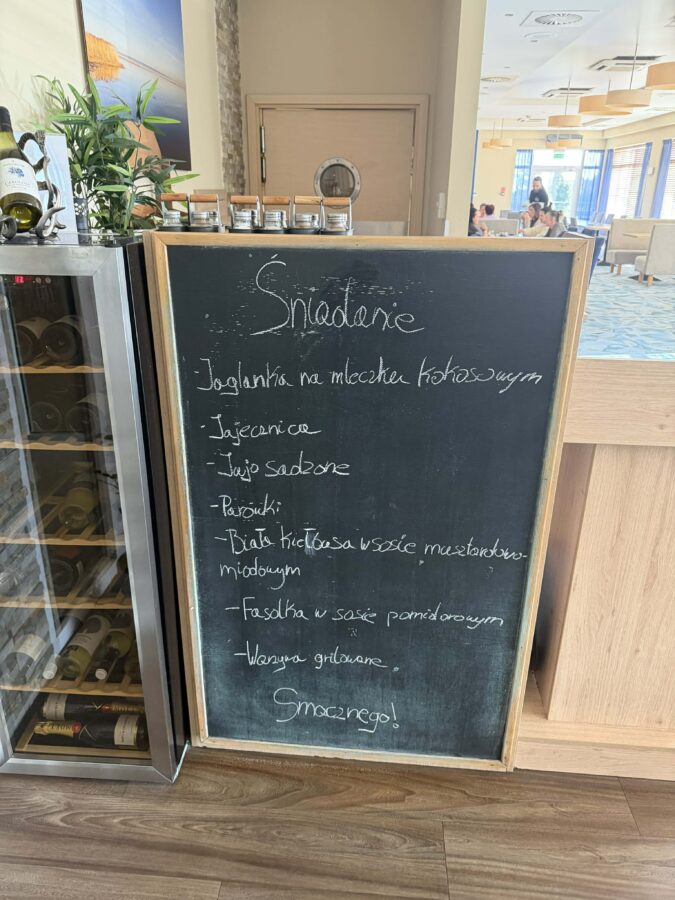 Śniadanie
- Jaglanka na mleczku kokosowym
- Jajecznica
- Jajo sadzone
- Parówki
- Biała kiełbasa w sosie musztardowo-
miodowym
- Fasolka w sosie pomidorowym
- Warzywa grilowane
Smacznego!